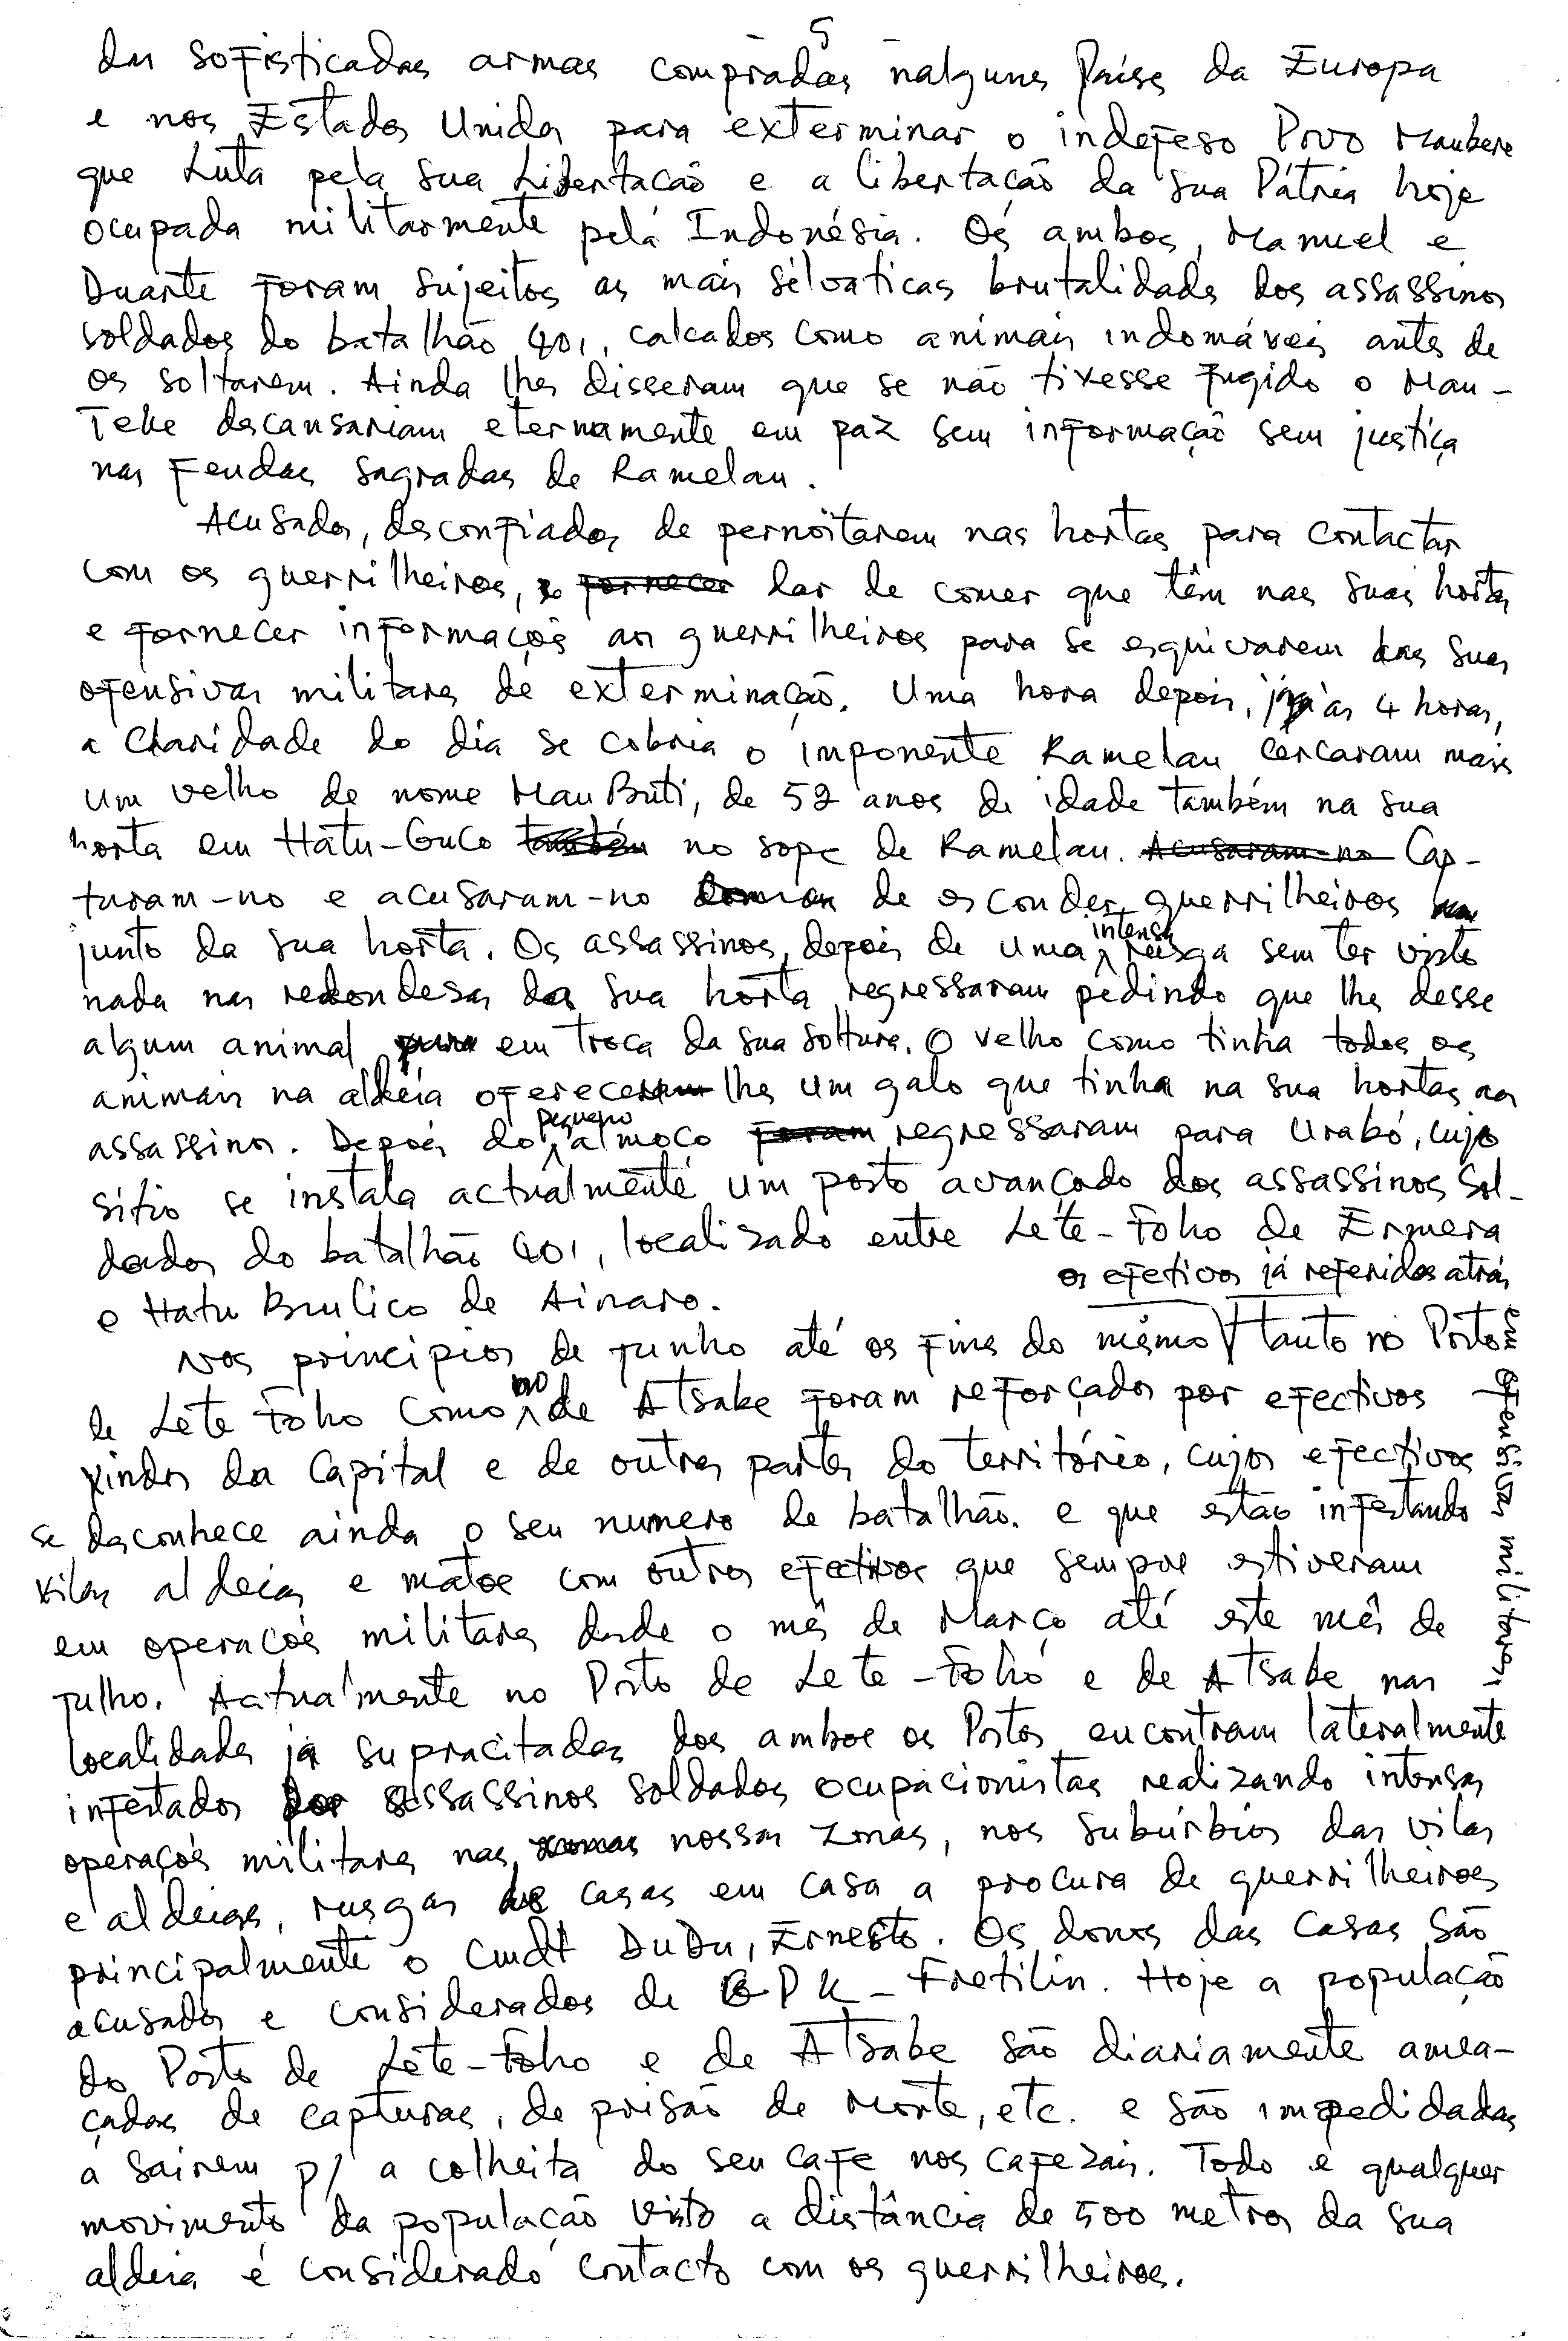 5
das sofisticadas armas compradas nalguns Paises da Europa
e nos Estados Unidos para exterminar o indefeso Povo Maubere
que Luta pela sua Libertação e a libertação da sua Pátria hoje
ocupada militarmente pela Indonésia. Os ambos, Manuel e
Duarte foram sujeitos as mais sélvaticas brutalidades dos assassinos
soldados do batalhão 401, calcados como animais indomáveis antes de
os soltarem. Ainda lhes disseram que se não tivesse fugido o Mau-
Teke descansariam eternamente em paz sem informação sem justiça
nas Fendas sagradas de Ramelau.
Acusados, desconfiados de pernoitarem nas hortas para contactar
com os guerrilheiros, e fornecer dar de comer que têm nas suas hortas
e fornecer informações aos guerrilheiros para se esquivarem das suas
ofensivas militares de exterminação. Uma hora depois, já às 4 horas,
a claridade do dia se cobria o imponente Ramelau cercaram mais
um velho de nome Mau Buti, de 52 anos de idade também na sua
horta em Hatu-Guco também no sope de Ramelau. Acusaram-no Cap-
turam-no e acusaram-no de esconder guerrilheiros
junto da sua horta. Os assassinos, depois de uma intensa rusga sem ter visto
nada nas redondesas da sua horta regressaram pedindo que lhes desse
algum animal para em troca da sua soltura. O velho como tinha todos os
animais na aldeia oferecer lhe um galo que tinha na sua hortas aos
assassinos. Depois do pequeno almoço foram regressaram para Urabó, cujo
sitio se instala actualmente um posto avançado dos assassinos Sol-
dados do batalhão 401, localizado entre Lete-Foho de Ermera
e Hatu Builico de Ainaro.
os efetivos já referidos atrás
Nos principios de Junho até os fins do mesmo tanto no Posto
de Lete Foho como no de Atsabe foram reforçados por efectivos
vindos da Capital e de outras partes do território, cujos efectivos
se desconhece ainda o seu numero de batalhão. e que estão infestando
vilas aldeias e matos com outros efectivos que sempre estiveram
em operacões militares desde o mês de Março até este mês de
Julho. Actualmente no Posto de Lete-Foho e de Atsabe nas
localidades já supracitadas dos ambos os Postos encontram lateralmente
infestados por assassinos soldados ocupacionistas realizando intensas
operações militares nas zonas nossas zonas, nos subúrbios das vilas
e aldeias, rusgas de casas em casa a procura de guerrilheiros
principalmente o Cmdt DuDu, Ernesto. Os donos das casas são
acusados e considerados de GPK - Fretilin. Hoje a população
do Posto de Lete-Foho e de Atsabe são diariamente amea-
çadas de capturas, de prisão de morte, etc. e são impedidadas
a sairem p/ a colheita do seu cafe nos cafezais. Todo e qualquer
movimento da população visto a distância de 500 metros da sua
aldeia é considerado contacto com os guerrilheiros.
em ofensivas militares,